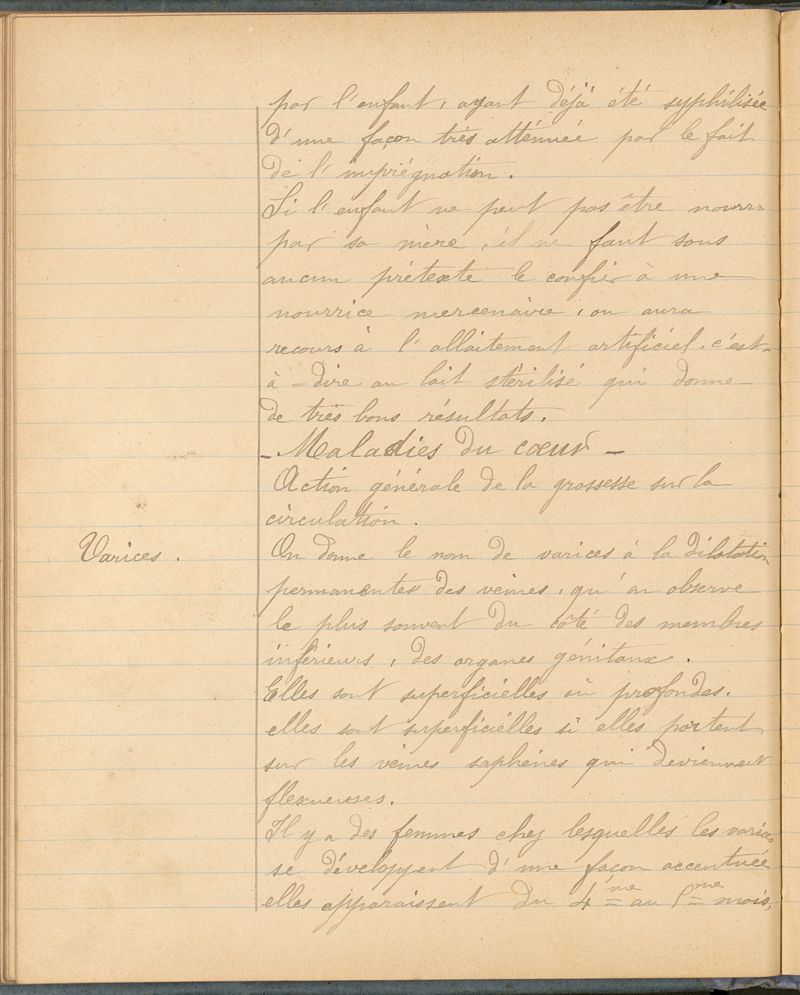 par l'enfant, ayant déjà été syphilisée
d'une façon très atténuée par le fait
de l'imprégnation.
Si l'enfant ne peut pas être nourri
par sa mère, il ne faut sous
aucun prétexte le confier à une
nourrice mercenaire, on aura
recours à l'allaitement artificiel. c'est-
à-dire au lait stérilisé qui donne
de très bons résultats.
- Maladies du cœur -
Action générale de la grossesse sur la
circulation.
Varices.
On donne le nom de varices à la dilatation
permanente des veines, qu'on observe
le plus souvent du côté des membres
inférieurs, des organes génitaux.
Elles sont superficielles ou profondes.
elles sont superficielles si elles portent
sur les veines saphènes qui deviennent
flexueuses.
Il y a des femmes chez lesquelles les varices
se développent d'une façon accentuée
elles apparaissent du 4me au me mois,